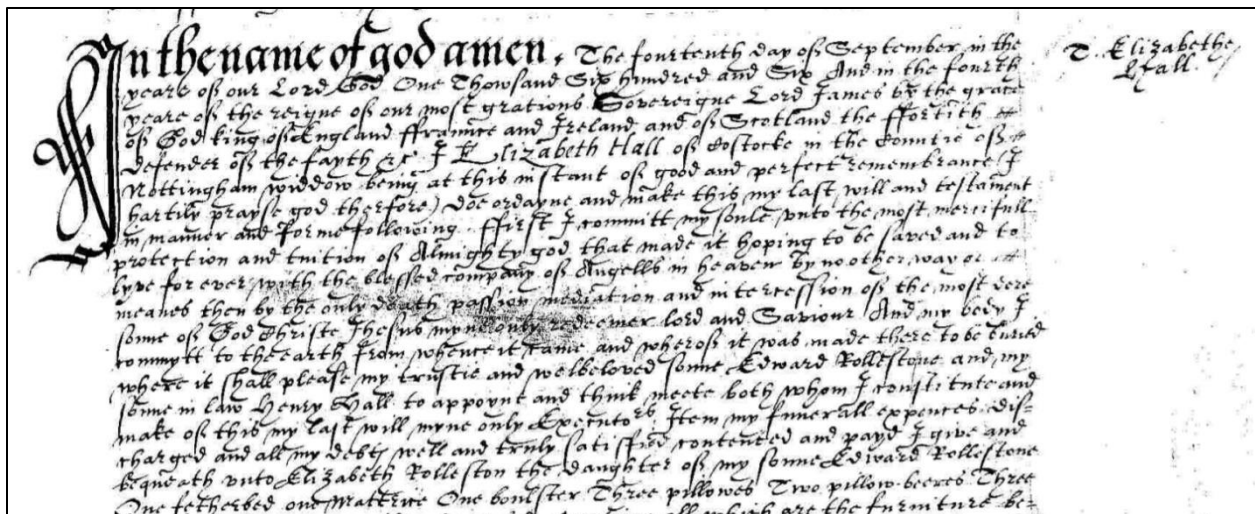 In the name of god amen. The fourtenth day of September in the
T. Elizabethe
Hall
yeare of our Lord God One Thowsand Six hundred and Six And in the fourth
yeare of the reigne of our most gratious Sovereigne Lord James by the grace
of God king of England ffraunce and Ireland and of Scotland the ffortith
defender of the fayth &c I Elizabeth Hall of Costocke in the Countie of
Nottingham widdow being at this instant of good and perfect remembrance (I
hartily prayse god therfore) doe ordayne and make this my last will and testament
in manner and forme following. ffirst I committ my soule unto the most mercifull
protection and tuition of Almighty god that made it hoping to be saved and to
lyve for ever with the blessed company of Angells in heaven by no other way or
meanes then by the only death passion mediation and intercession of the most dere
sonne of God Christe Jhesus myne only redeemer lord and Saviour And my body I
committ to the earth from whence it came and wherof it was made there to be buried
where it shall please my trustie and welbeloved sonne Edward Rollestone and my
sonne in law Henry Hall to appoynt and think meete both whom I constitute and
make of this my last will myne only Executors Item my funerall expences dis=
charged and all my debts well and truly satisfied contented and payd I give and
bequeath unto Elizabeth Rolleston the daughter of my sonne Edward Rollestone
One fetherbed one mattrice One boulster Three pillowes Two pillow-beeres Three
all which are the furniture be=